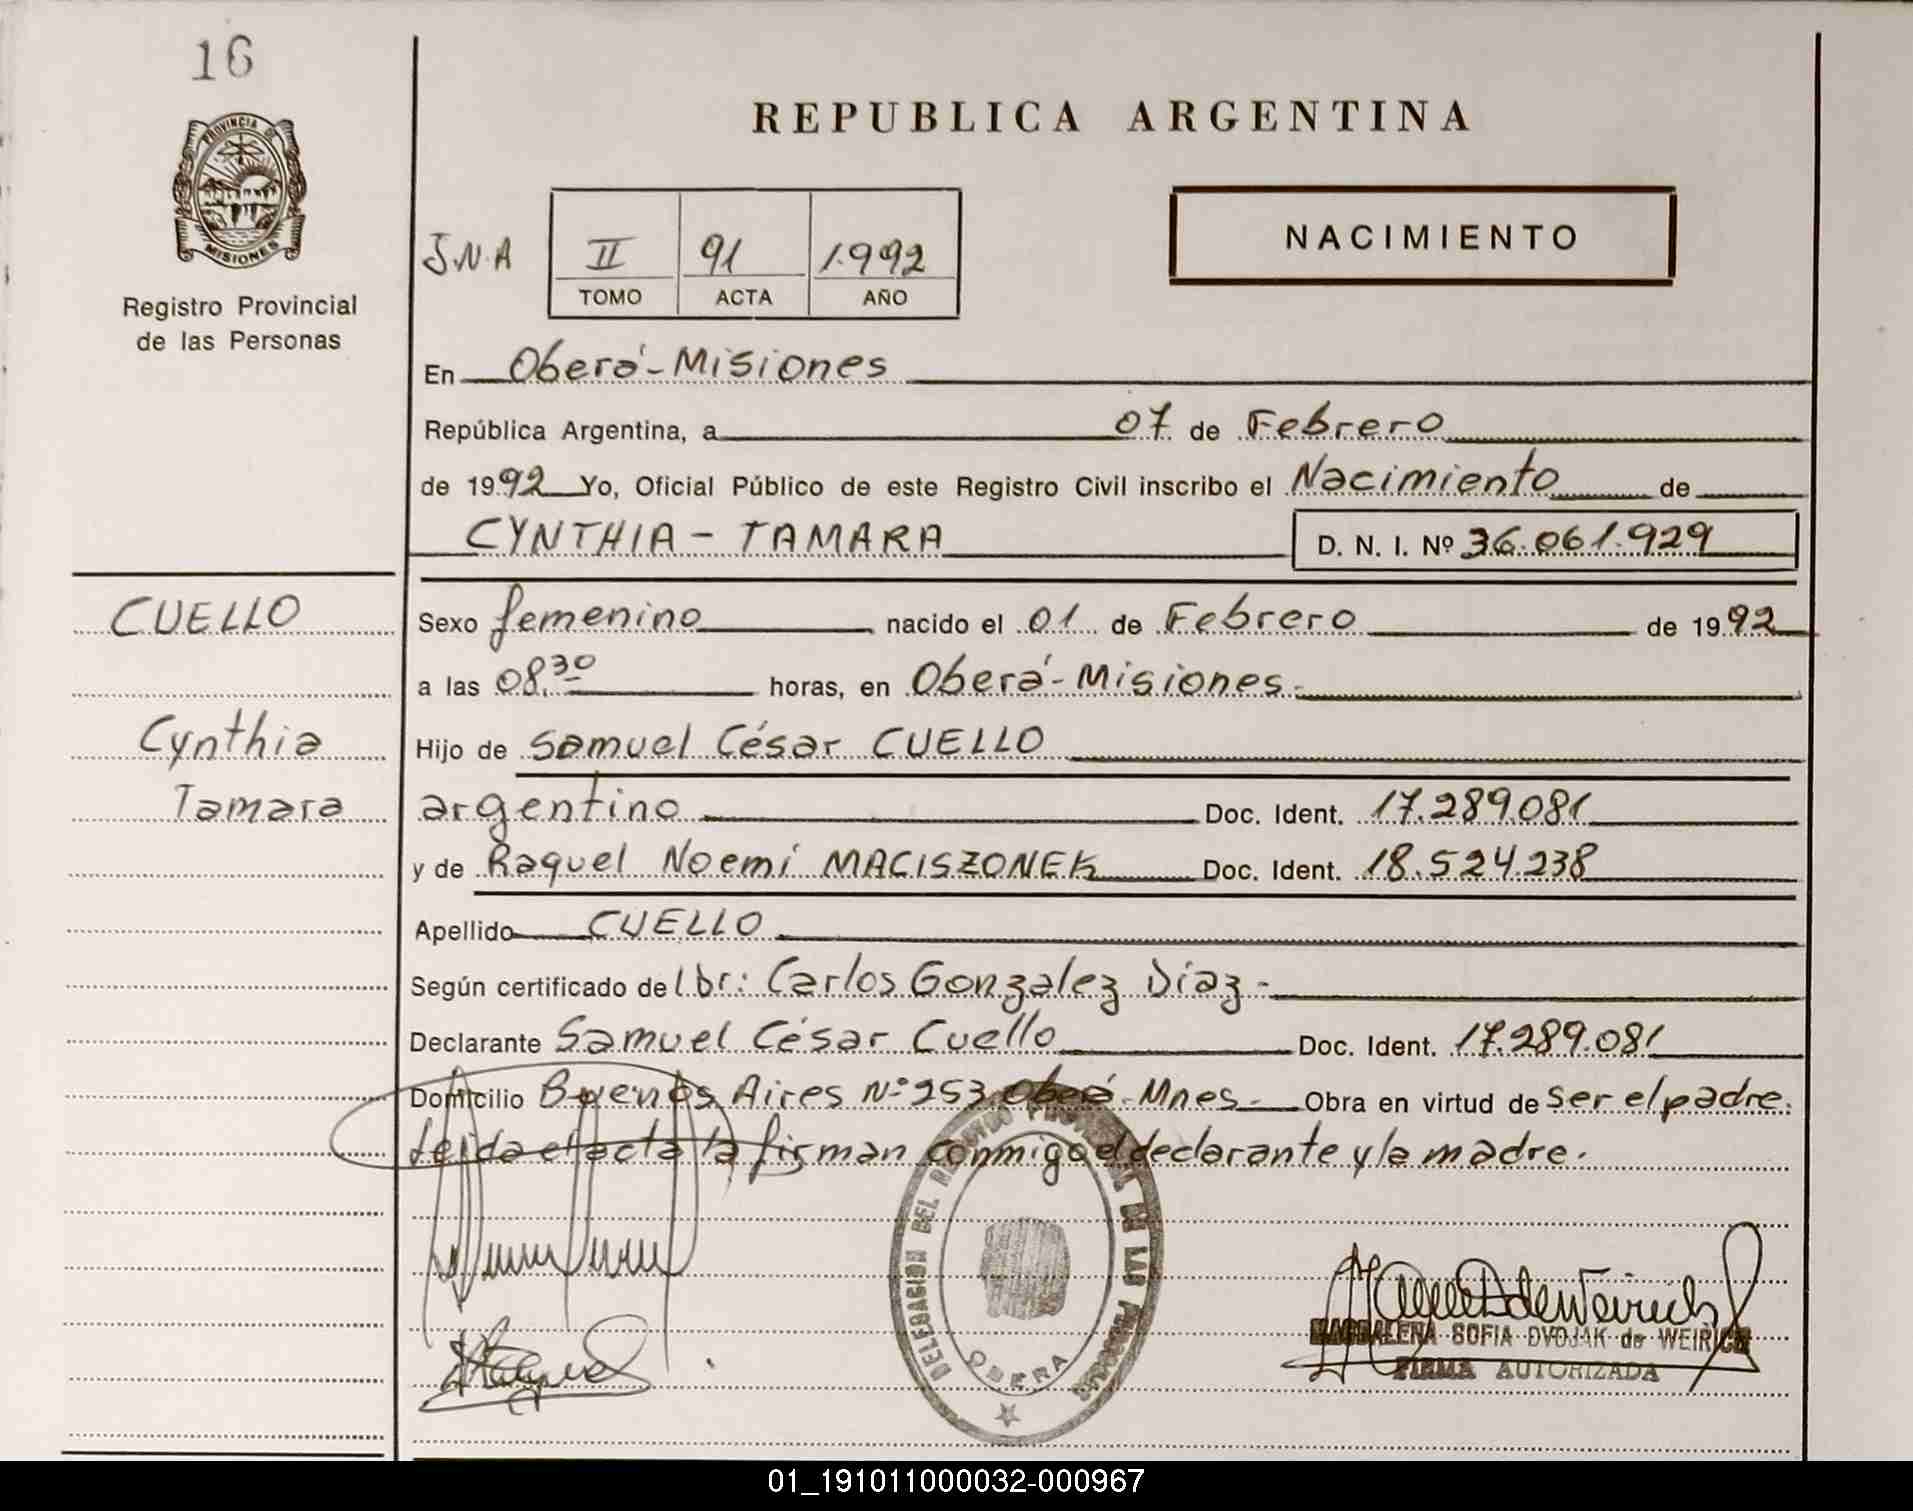 16
PROVINCIA DE
MISIONES
Registro Provincial
de las Personas
REPUBLICA ARGENTINA
NACIMIENTO
J.N.A II 91 1.992
TOMO ACTA AÑO
En Oberá-Misiones
República Argentina, a 07 de Febrero
de 1992 Yo, Oficial Público de este Registro Civil inscribo el Nacimiento de
CYNTHIA - TAMARA D. N. I. Nº 36.061.929
CUELLO
Cynthia
Tamara
Sexo femenino nacido el 01 de Febrero de 1992
a las 08.30 horas, en Oberá-Misiones.-
Hijo de Samuel César CUELLO
argentino Doc. Ident. 17.289.081
y de Raquel Noemí MACISZONEK Doc. Ident. 18.524.238
Apellido CUELLO
Según certificado del Dr: Carlos Gonzalez Díaz-
Declarante Samuel César Cuello Doc. Ident. 17.289.081
Domicilio Buenos Aires Nº 253 Oberá-Mnes.- Obra en virtud de ser el padre.
Leida el acta la firman conmigo el declarante y la madre.
DELEGACION DEL REGISTRO PROVINCIAL DE LAS PERSONAS
OBERA
MAGDALENA SOFIA DVOJAK de WEIRICH
FIRMA AUTORIZADA
01_191011000032-000967